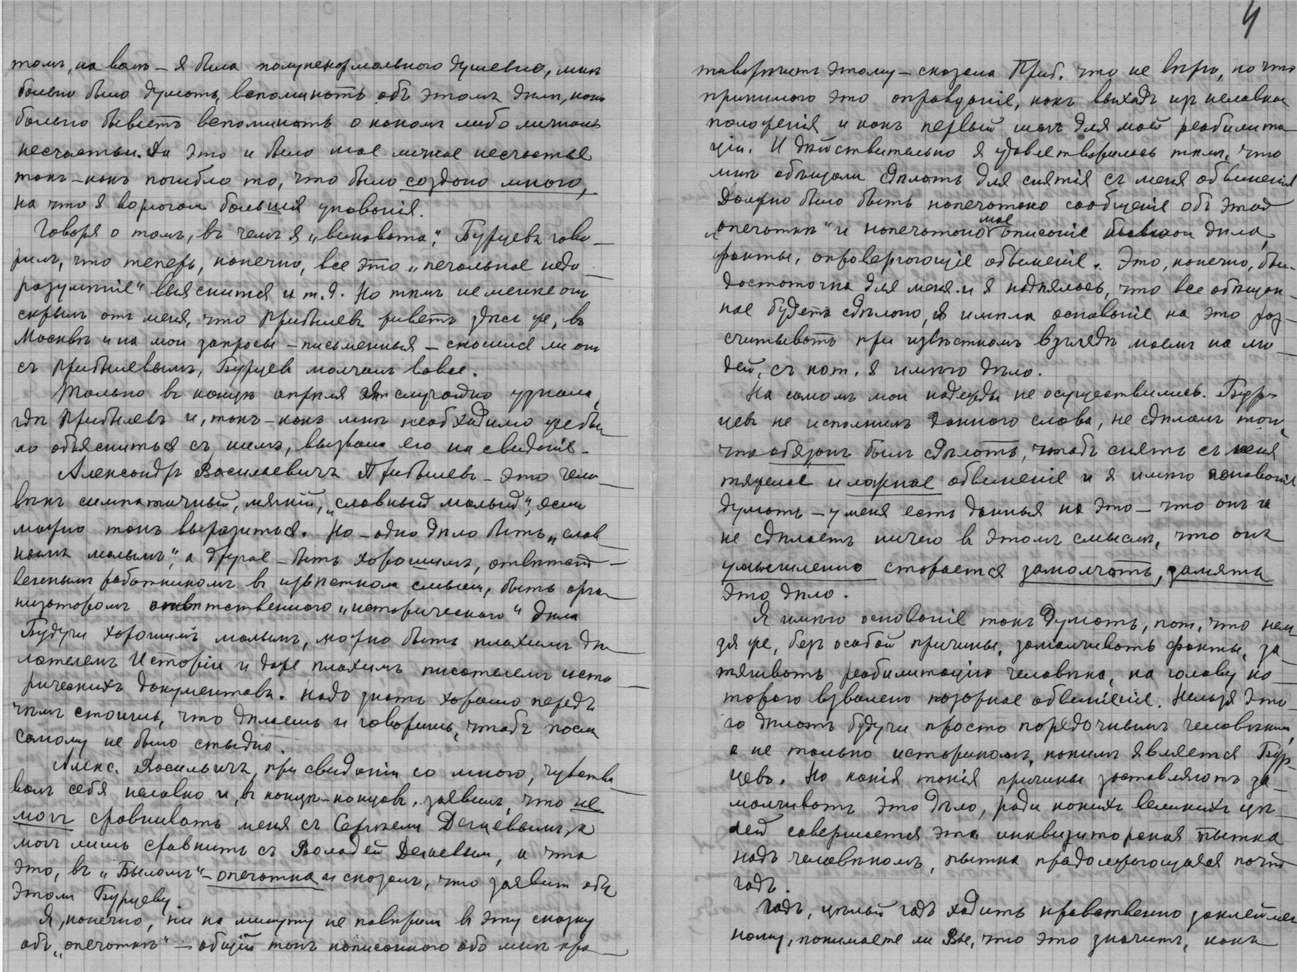 4
томъ, на васъ – я была полуненормальною душевно, мнѣ
больно было думать, вспоминать объ этомъ дѣлѣ, какъ
больно бываетъ вспоминать о какомъ либо личномъ
несчастьи. Да это и было мое личное несчастье
такъ-какъ погибло то, что было создано много,
на что я возлагала большія упованія.
Говоря о томъ, въ чемъ я „виновата“, Бурцевъ гово-
рилъ, что теперь, конечно, все это „печальное недо-
разумѣніе“ выяснится и т.д. Но тѣмъ не менѣе онъ
скрылъ отъ меня, что Прибылевъ живетъ здѣсь же, въ
Москвѣ и на мои запросы – письменные – снесся ли онъ
съ Прибылевымъ, Бурцевъ молчалъ вовсе.
Только въ концѣ апрѣля я случайно узнала,
гдѣ Прибылевъ и, такъ-какъ мнѣ необходимо уже бы-
ло объясниться съ нимъ, вызвала его на свиданіе.
Александръ Васильевичъ Прибылевъ – это чело-
вѣкъ симпатичный, мягкій, „славный малый“, если
можно такъ выразиться. Но – одно дѣло быть „слав-
нымъ малымъ“, а другое – быть хорошимъ, отвѣтст-
веннымъ работникомъ въ извѣстномъ смыслѣ, быть орга-
низаторомъ отвѣтственного „историческаго“ дѣла
Будучи хорошимъ малымъ, можно быть плохимъ дѣ-
лателемъ Исторіи и даже плохимъ писателемъ исто-
рическихъ документовъ. Надо знать хорошо передъ
чѣмъ стоишь, что дѣлаешь и говоришь, чтобъ послѣ
самому не было стыдно.
Алекс. Васильичъ, при свиданіи со мною, чувство-
валъ себя неловко и, въ концѣ-концовъ, заявилъ, что не
могъ сравнивать меня съ Сергѣемъ Дегаевымъ, а
могъ лишь сравнить съ Володей Дегаевымъ, и что
это, въ „Быломъ“ – опечатка и сказалъ, что заявитъ объ
этомъ Бурцеву.
Я, конечно, ни на минуту не повѣрила въ эту сказку
объ „опечаткѣ“ – общій тонъ написанного обо мнѣ про-
тиворѣчитъ этому – сказала Приб. что не вѣрю, но что
принимаю это оправданіе, какъ выходъ изъ неловкаго
положенія и какъ первый шагъ для моей реабилита-
ціи. И дѣйствительно я удовлетворилась тѣмъ, что
мнѣ обѣщали сдѣлать для снятія съ меня обвиненія
Должно было быть напечатано сообщеніе объ этой
„опечаткѣ“ и напечатано мое описаніе дѣла,
факты, опровергающіе обвиненіе. Это, конечно, бы-
достаточно для меня и я надѣялась, что все обѣщан-
ное будетъ сдѣлано, я имѣла основаніе на это раз-
считывать при извѣстномъ взглядѣ моемъ на лю-
дей, съ кот. я имѣю дѣло.
На самомъ мои надежды не осуществились. Бур-
цевъ не исполнилъ даннаго слова, не сдѣлалъ того,
что обязанъ былъ сдѣлать, чтобъ снять съ меня
тяжелое и ложное обвиненіе и я имѣю основаніе
думать – у меня есть данныя на это – что онъ и
не сдѣлаетъ ничего въ этомъ смыслѣ, что онъ
умышленно старается замолчать, замять
это дѣло.
Я имѣю основаніе такъ думать, пот. что нель-
зя же, безъ особой причины, замалчивать факты, за-
тягивать реабилитацію человѣка, на голову ко-
тораго взвалено позорное обвиненіе. Нельзя это-
го дѣлать будучи просто порядочнымъ человѣкомъ,
а не только историкомъ, какимъ является Бур-
цевъ. Но какія такія причины заставляютъ за-
малчивать это дѣло, ради какихъ великихъ цѣ-
лей совершается эта инквизиторская пытка
надъ человѣкомъ, пытка продолжающаяся почти
годъ.
Годъ, цѣлый годъ ходить нравственно заклеймен-
ному, понимаете ли Вы, что это значитъ, какъ